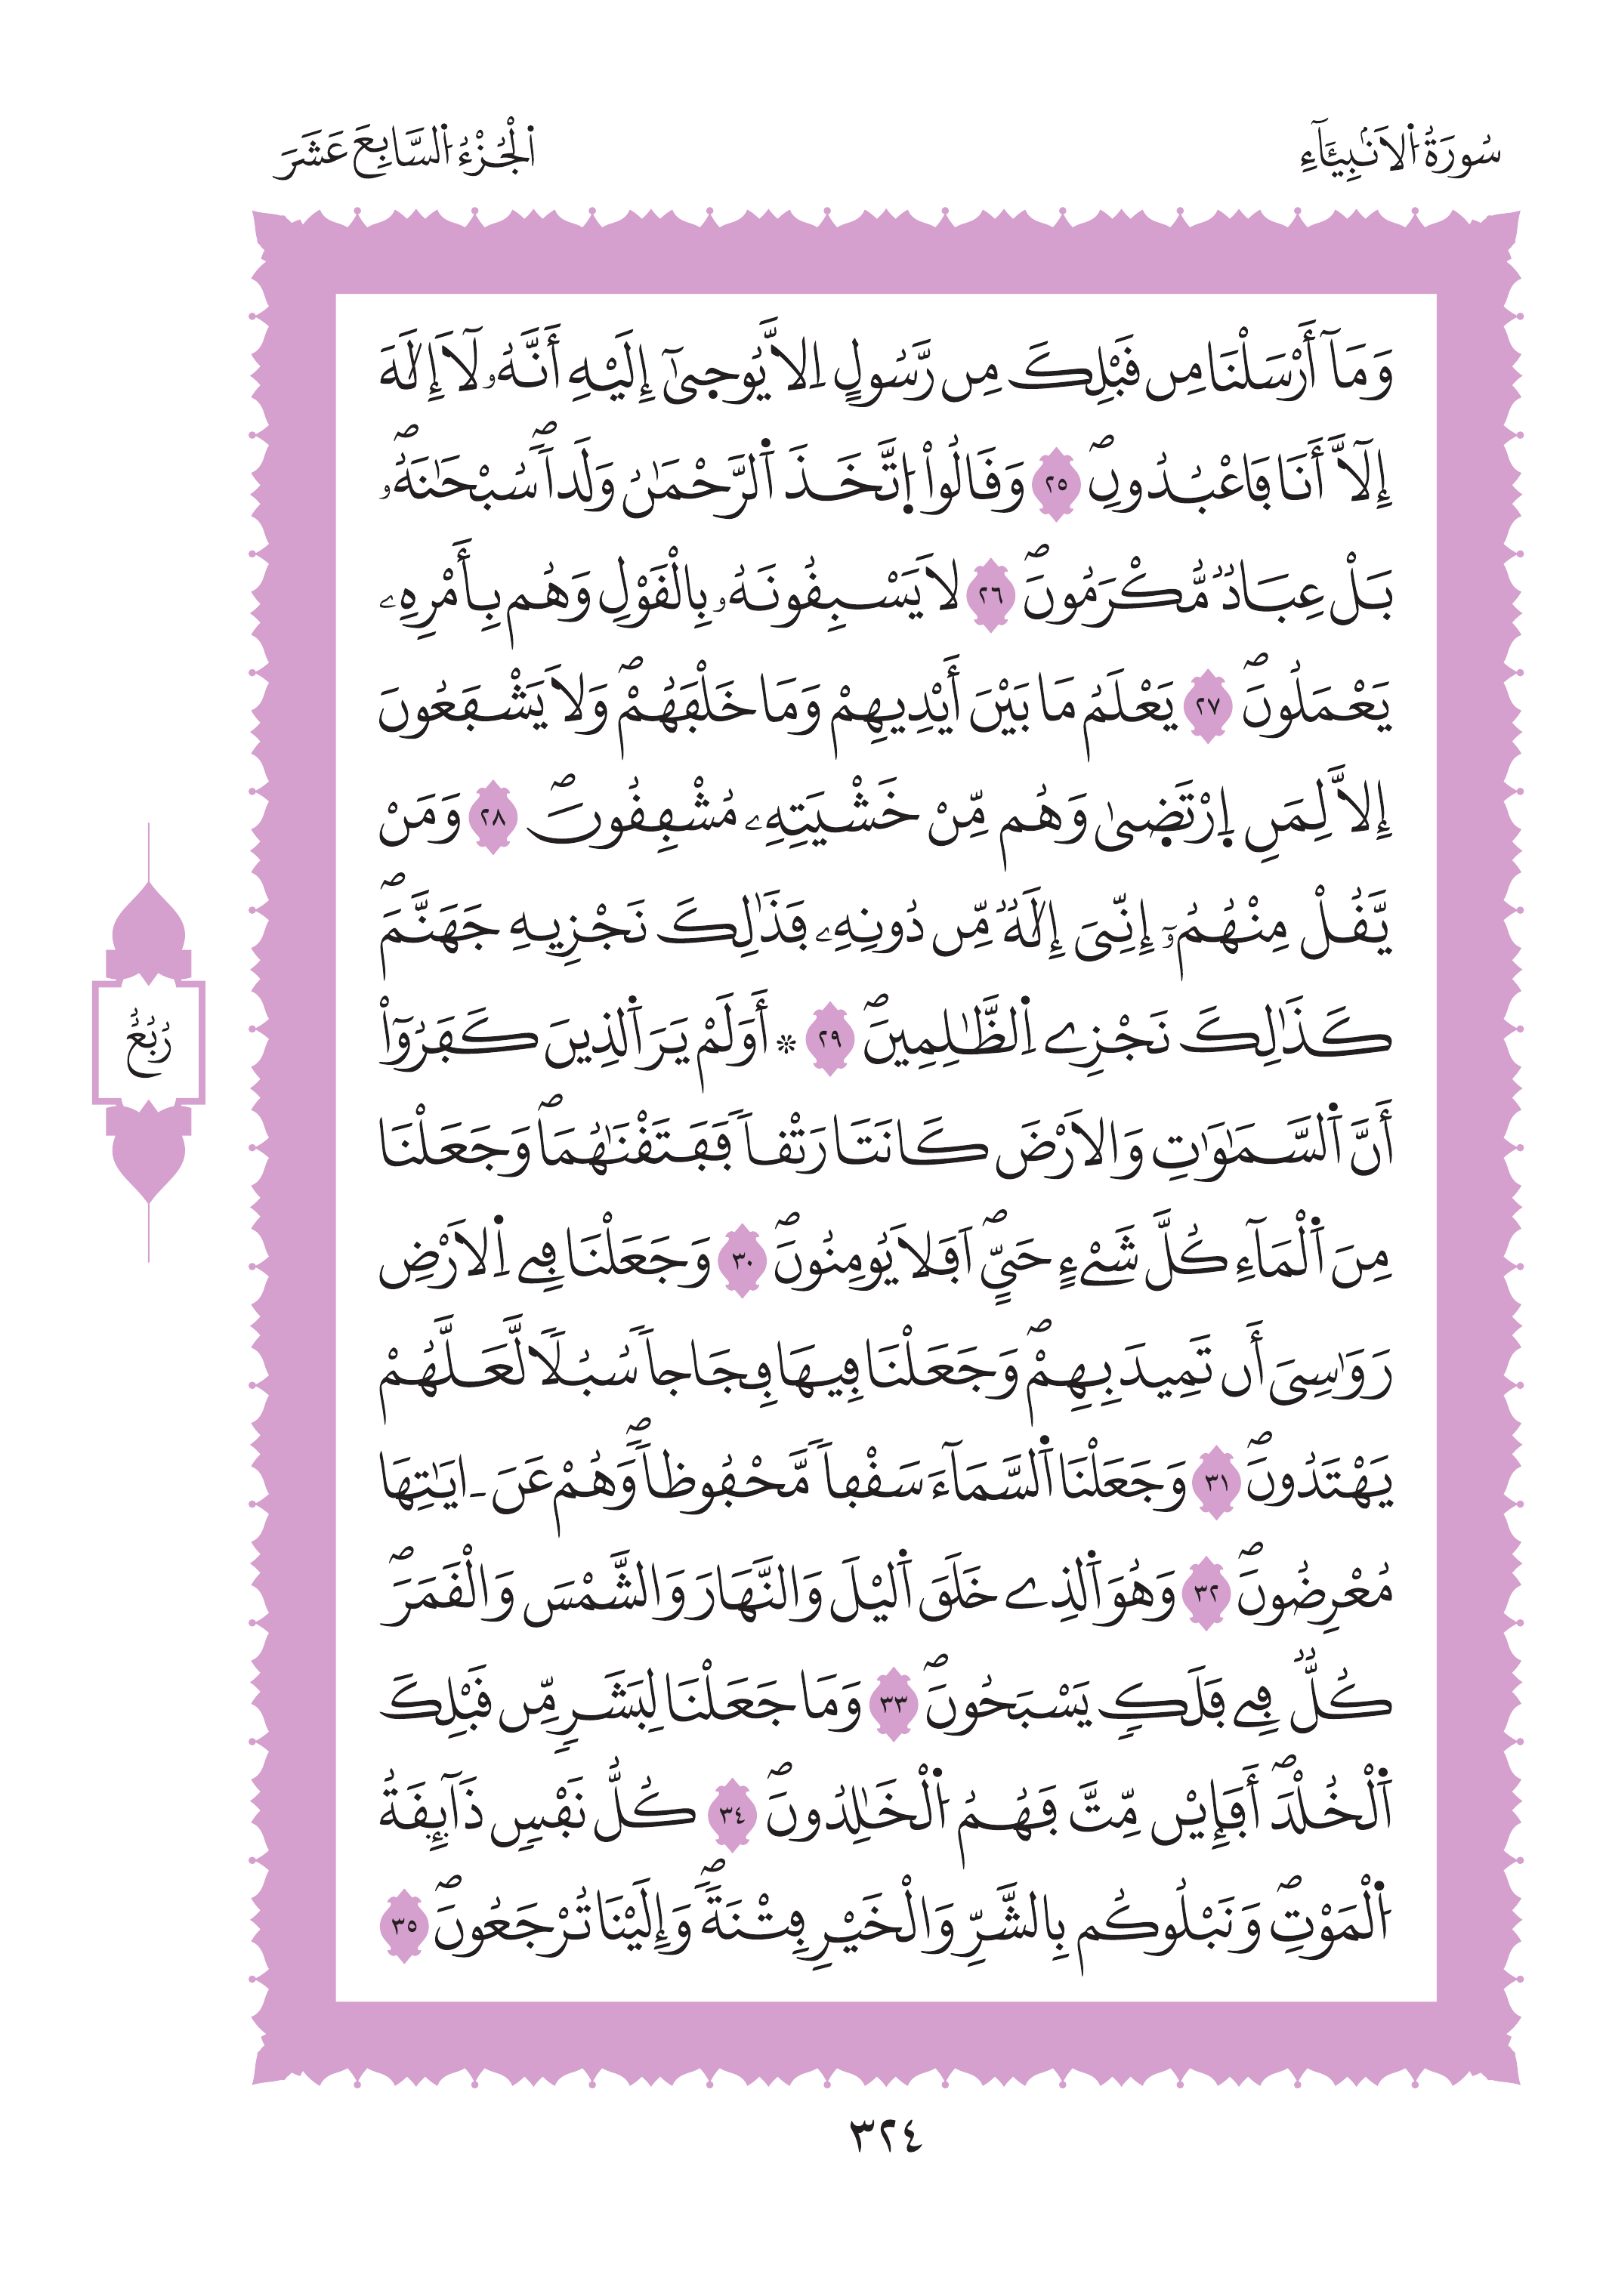 سُورَةُ اُ۬لَانۢبِيَآءِ
اَ۬لْجُزْءُ اُ۬لسَّابِعَ عَشَرَ
وَمَآ أَرْسَلْنَا مِن قَبْلِكَ مِن رَّسُولٍ اِلَّا يُوح۪يٰٓ إِلَيْهِ أَنَّهُۥ لَآ إِلَٰهَ
إِلَّآ أَنَا فَاعْبُدُونِۖ ٢٥ وَقَالُواْ اُ۪تَّخَذَ اَ۬لرَّحْمَٰنُ وَلَداٗۖ سُبْحَٰنَهُۥۖ
بَلْ عِبَادٞ مُّكْرَمُونَۖ ٢٦ لَا يَسْبِقُونَهُۥ بِالْقَوْلِ وَهُم بِأَمْرِهِۦ
يَعْمَلُونَۖ ٢٧ يَعْلَمُ مَا بَيْنَ أَيْدِيهِمْ وَمَا خَلْفَهُمْۖ وَلَا يَشْفَعُونَ
إِلَّا لِمَنِ اِ۪رْتَض۪يٰ وَهُم مِّنْ خَشْيَتِهِۦ مُشْفِقُونَۖ ٢٨ وَمَنْ
يَّقُلْ مِنْهُمُۥٓ إِنِّيَ إِلَٰهٞ مِّن دُونِهِۦ فَذَٰلِكَ نَجْزِيهِ جَهَنَّمَۖ
كَذَٰلِكَ نَجْزِے اِ۬لظَّٰلِمِينَۖ ٢٩ ۞ أَوَلَمْ يَرَ اَ۬لذِينَ كَفَرُوٓاْ
أَنَّ اَ۬لسَّمَٰوَٰتِ وَالَارْضَ كَانَتَا رَتْقاٗ فَفَتَقْنَٰهُمَاۖ وَجَعَلْنَا
مِنَ اَ۬لْمَآءِ كُلَّ شَےْءٍ حَيٍّۖ اَفَلَا يُومِنُونَۖ ٣٠ وَجَعَلْنَا فِے اِ۬لَارْضِ
رَوَٰسِيَ أَن تَمِيدَ بِهِمْۖ وَجَعَلْنَا فِيهَا فِجَاجاٗ سُبُلاٗ لَّعَلَّهُمْ
يَهْتَدُونَۖ ٣١ وَجَعَلْنَا اَ۬لسَّمَآءَ سَقْفاٗ مَّحْفُوظاٗۖ وَهُمْ عَنَ ـ ايَٰتِهَا
مُعْرِضُونَۖ ٣٢ وَهُوَ اَ۬لذِے خَلَقَ اَ۬ليْلَ وَالنَّهَارَ وَالشَّمْسَ وَالْقَمَرَۖ
كُلّٞ فِے فَلَكٖ يَسْبَحُونَۖ ٣٣ وَمَا جَعَلْنَا لِبَشَرٖ مِّن قَبْلِكَ
اَ۬لْخُلْدَۖ أَفَإِيْن مِّتَّ فَهُمُ اُ۬لْخَٰلِدُونَۖ ٣٤ كُلُّ نَفْسٖ ذَآئِقَةُ
اُ۬لْمَوْتِۖ وَنَبْلُوكُم بِالشَّرِّ وَالْخَيْرِ فِتْنَةٗۖ وَإِلَيْنَا تُرْجَعُونَۖ ٣٥
رُبُعُ
٣٢٤